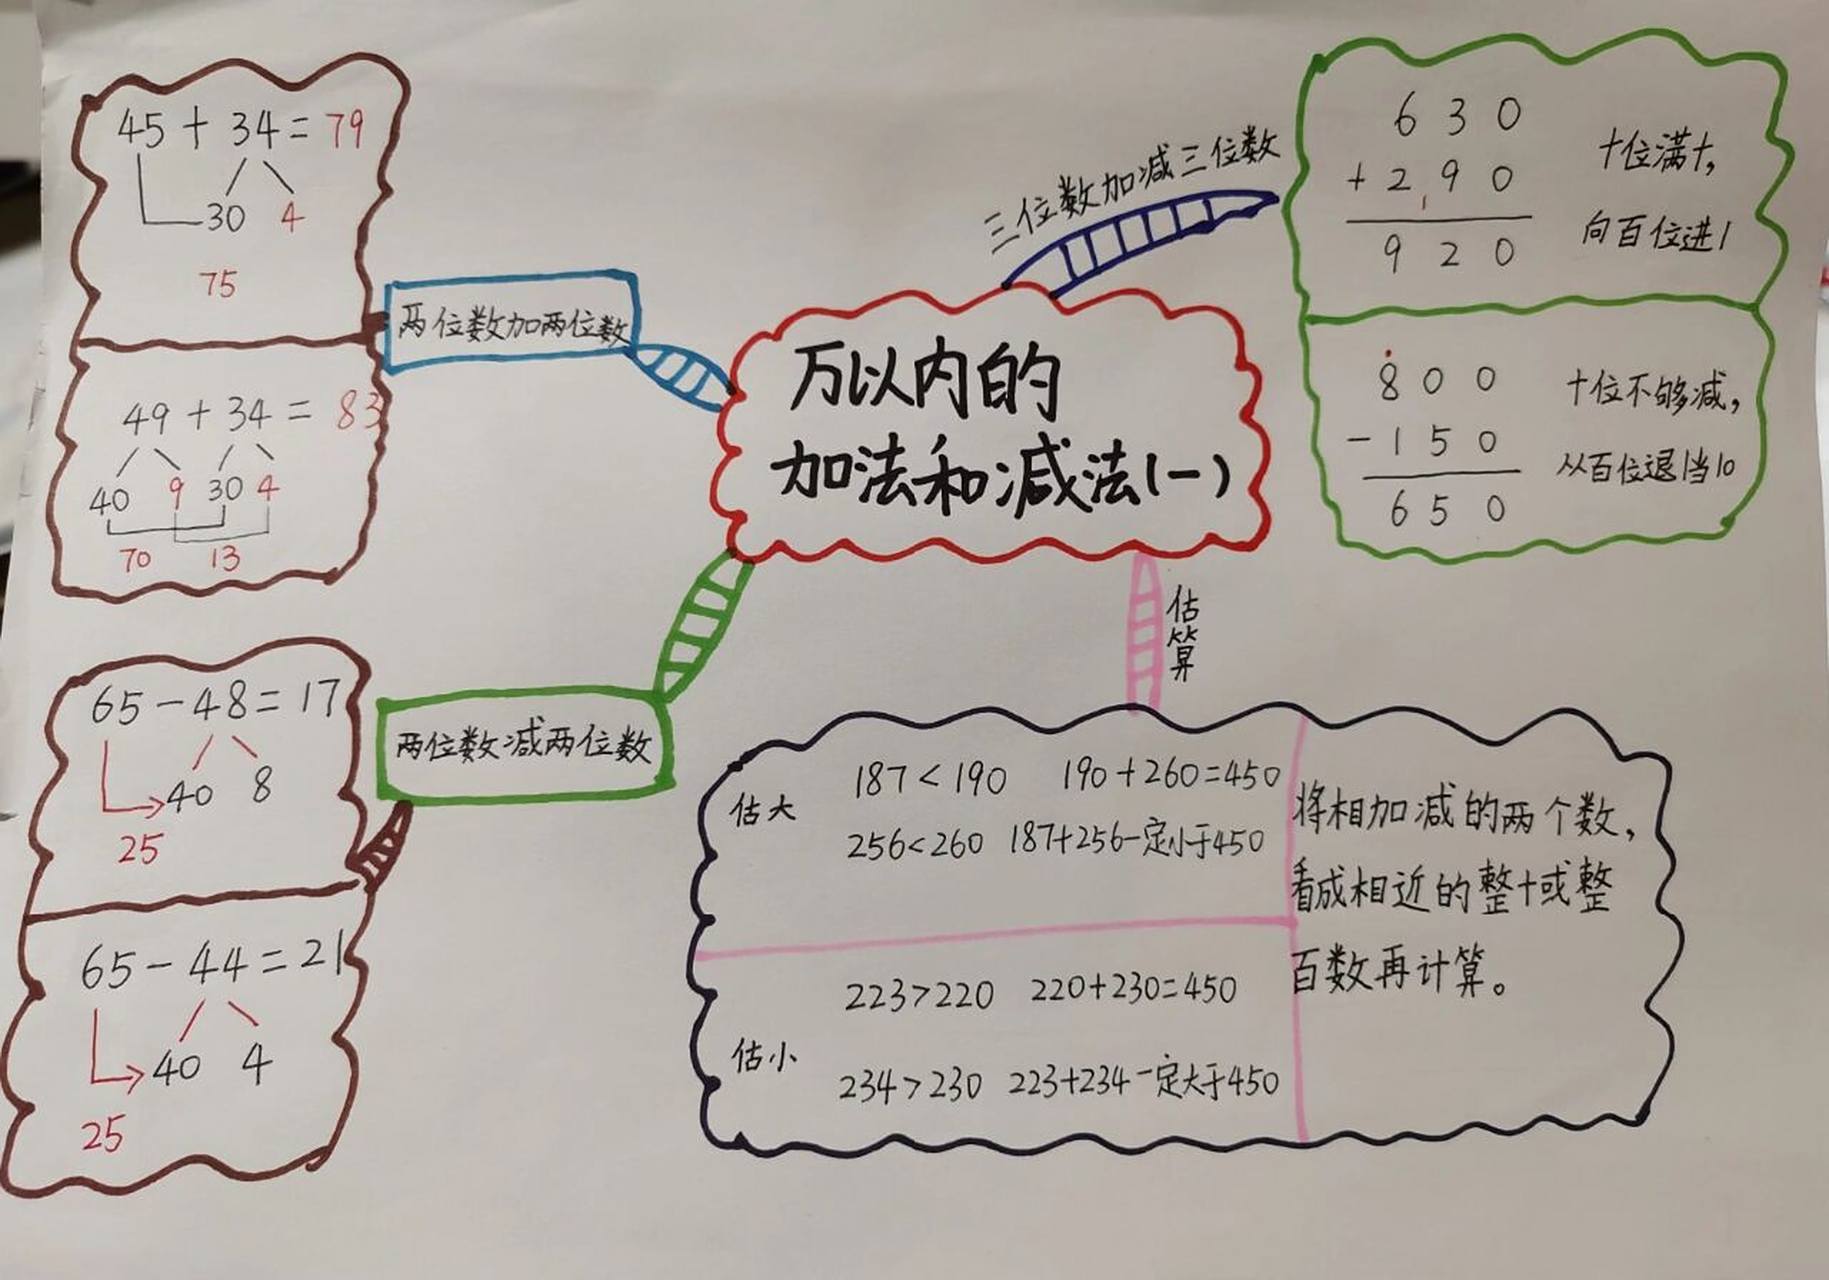 万以内的
加法和减法(一)
两位数加两位数
45 + 34 = 79
30 4
75
49 + 34 = 83
40 9 30 4
70 13
两位数减两位数
65 - 48 = 17
40 8
25
65 - 44 = 21
40 4
25
三位数加减三位数
6 3 0
+ 2 9 0
1
9 2 0
十位满十,
向百位进1
8 0 0
- 1 5 0
6 5 0
十位不够减,
从百位退1当10
估算
估大
187 < 190 190+260=450
256<260 187+256一定小于450
估小
223>220 220+230=450
234>230 223+234一定大于450
将相加减的两个数,
看成相近的整十或整
百数再计算。